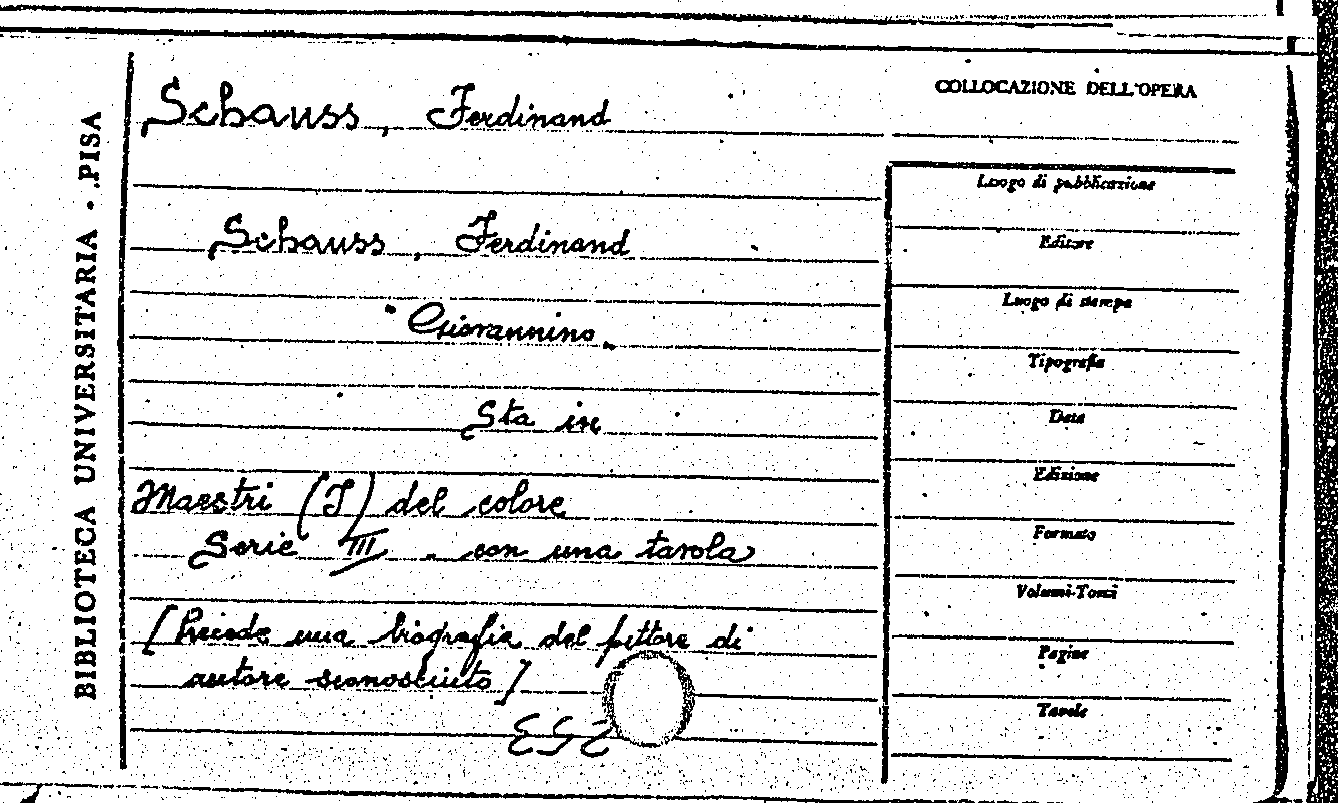 BIBLIOTECA UNIVERSITARIA - PISA
Schauss, Ferdinand
Schauss, Ferdinand
"Giovannino„
Sta in
Maestri (I) del colore
Serie III - con una tavola
[Precede una biografia del pittore di
autore sconosciuto]
COLLOCAZIONE DELL'OPERA
Luogo di pubblicazione
Editore
Luogo di stampa
Tipografia
Data
Edizione
Formato
Volumi-Tomi
Pagine
Tavole